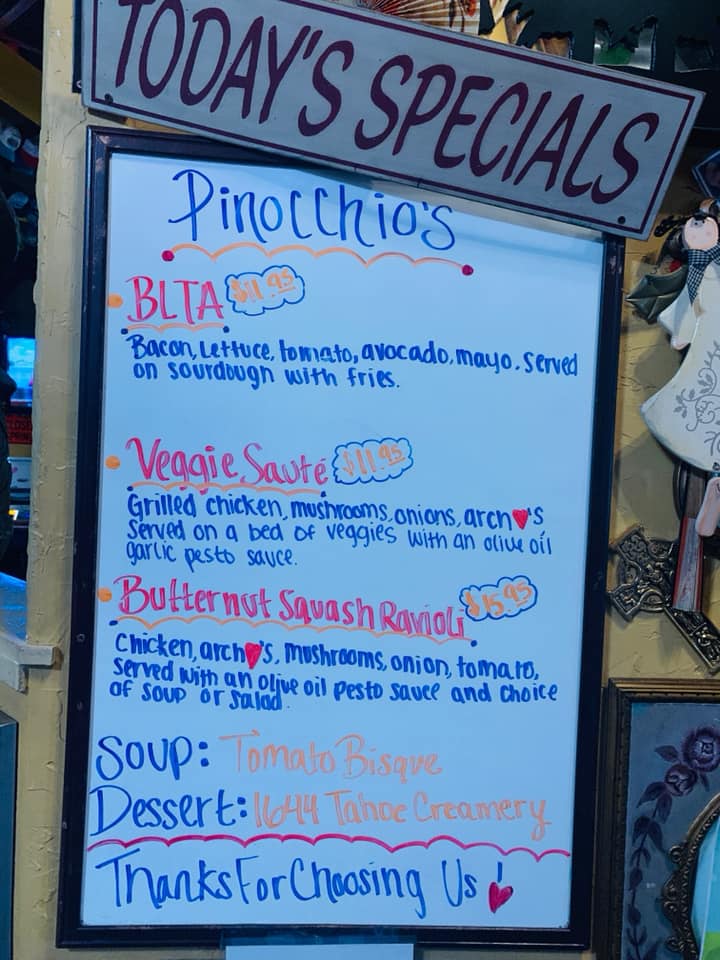 TODAY'S SPECIALS
Pinocchio's
BLTA $11.95
Bacon, Lettuce, tomato, avocado, mayo. Served
on sourdough with fries.
Veggie Sauté $11.95
Grilled chicken, mushrooms, onions, arch♥'s
Served on a bed of veggies with an olive oil
garlic pesto sauce.
Butternut Squash Ravioli $15.95
Chicken, arch♥'s, mushrooms, onion, tomato,
Served with an olive oil pesto sauce and choice
of soup or salad.
Soup: Tomato Bisque
Dessert: 1644 Tahoe Creamery
Thanks For Choosing Us!